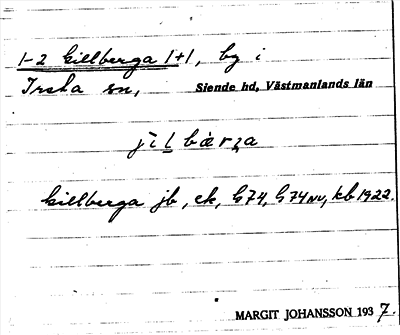 1-2 Killberga 1+1, by i
Irsta sn, Siende hd, Västmanlands län
killberga jb, ek, G74, G74NV, kb 1922.
MARGIT JOHANSSON 1937.